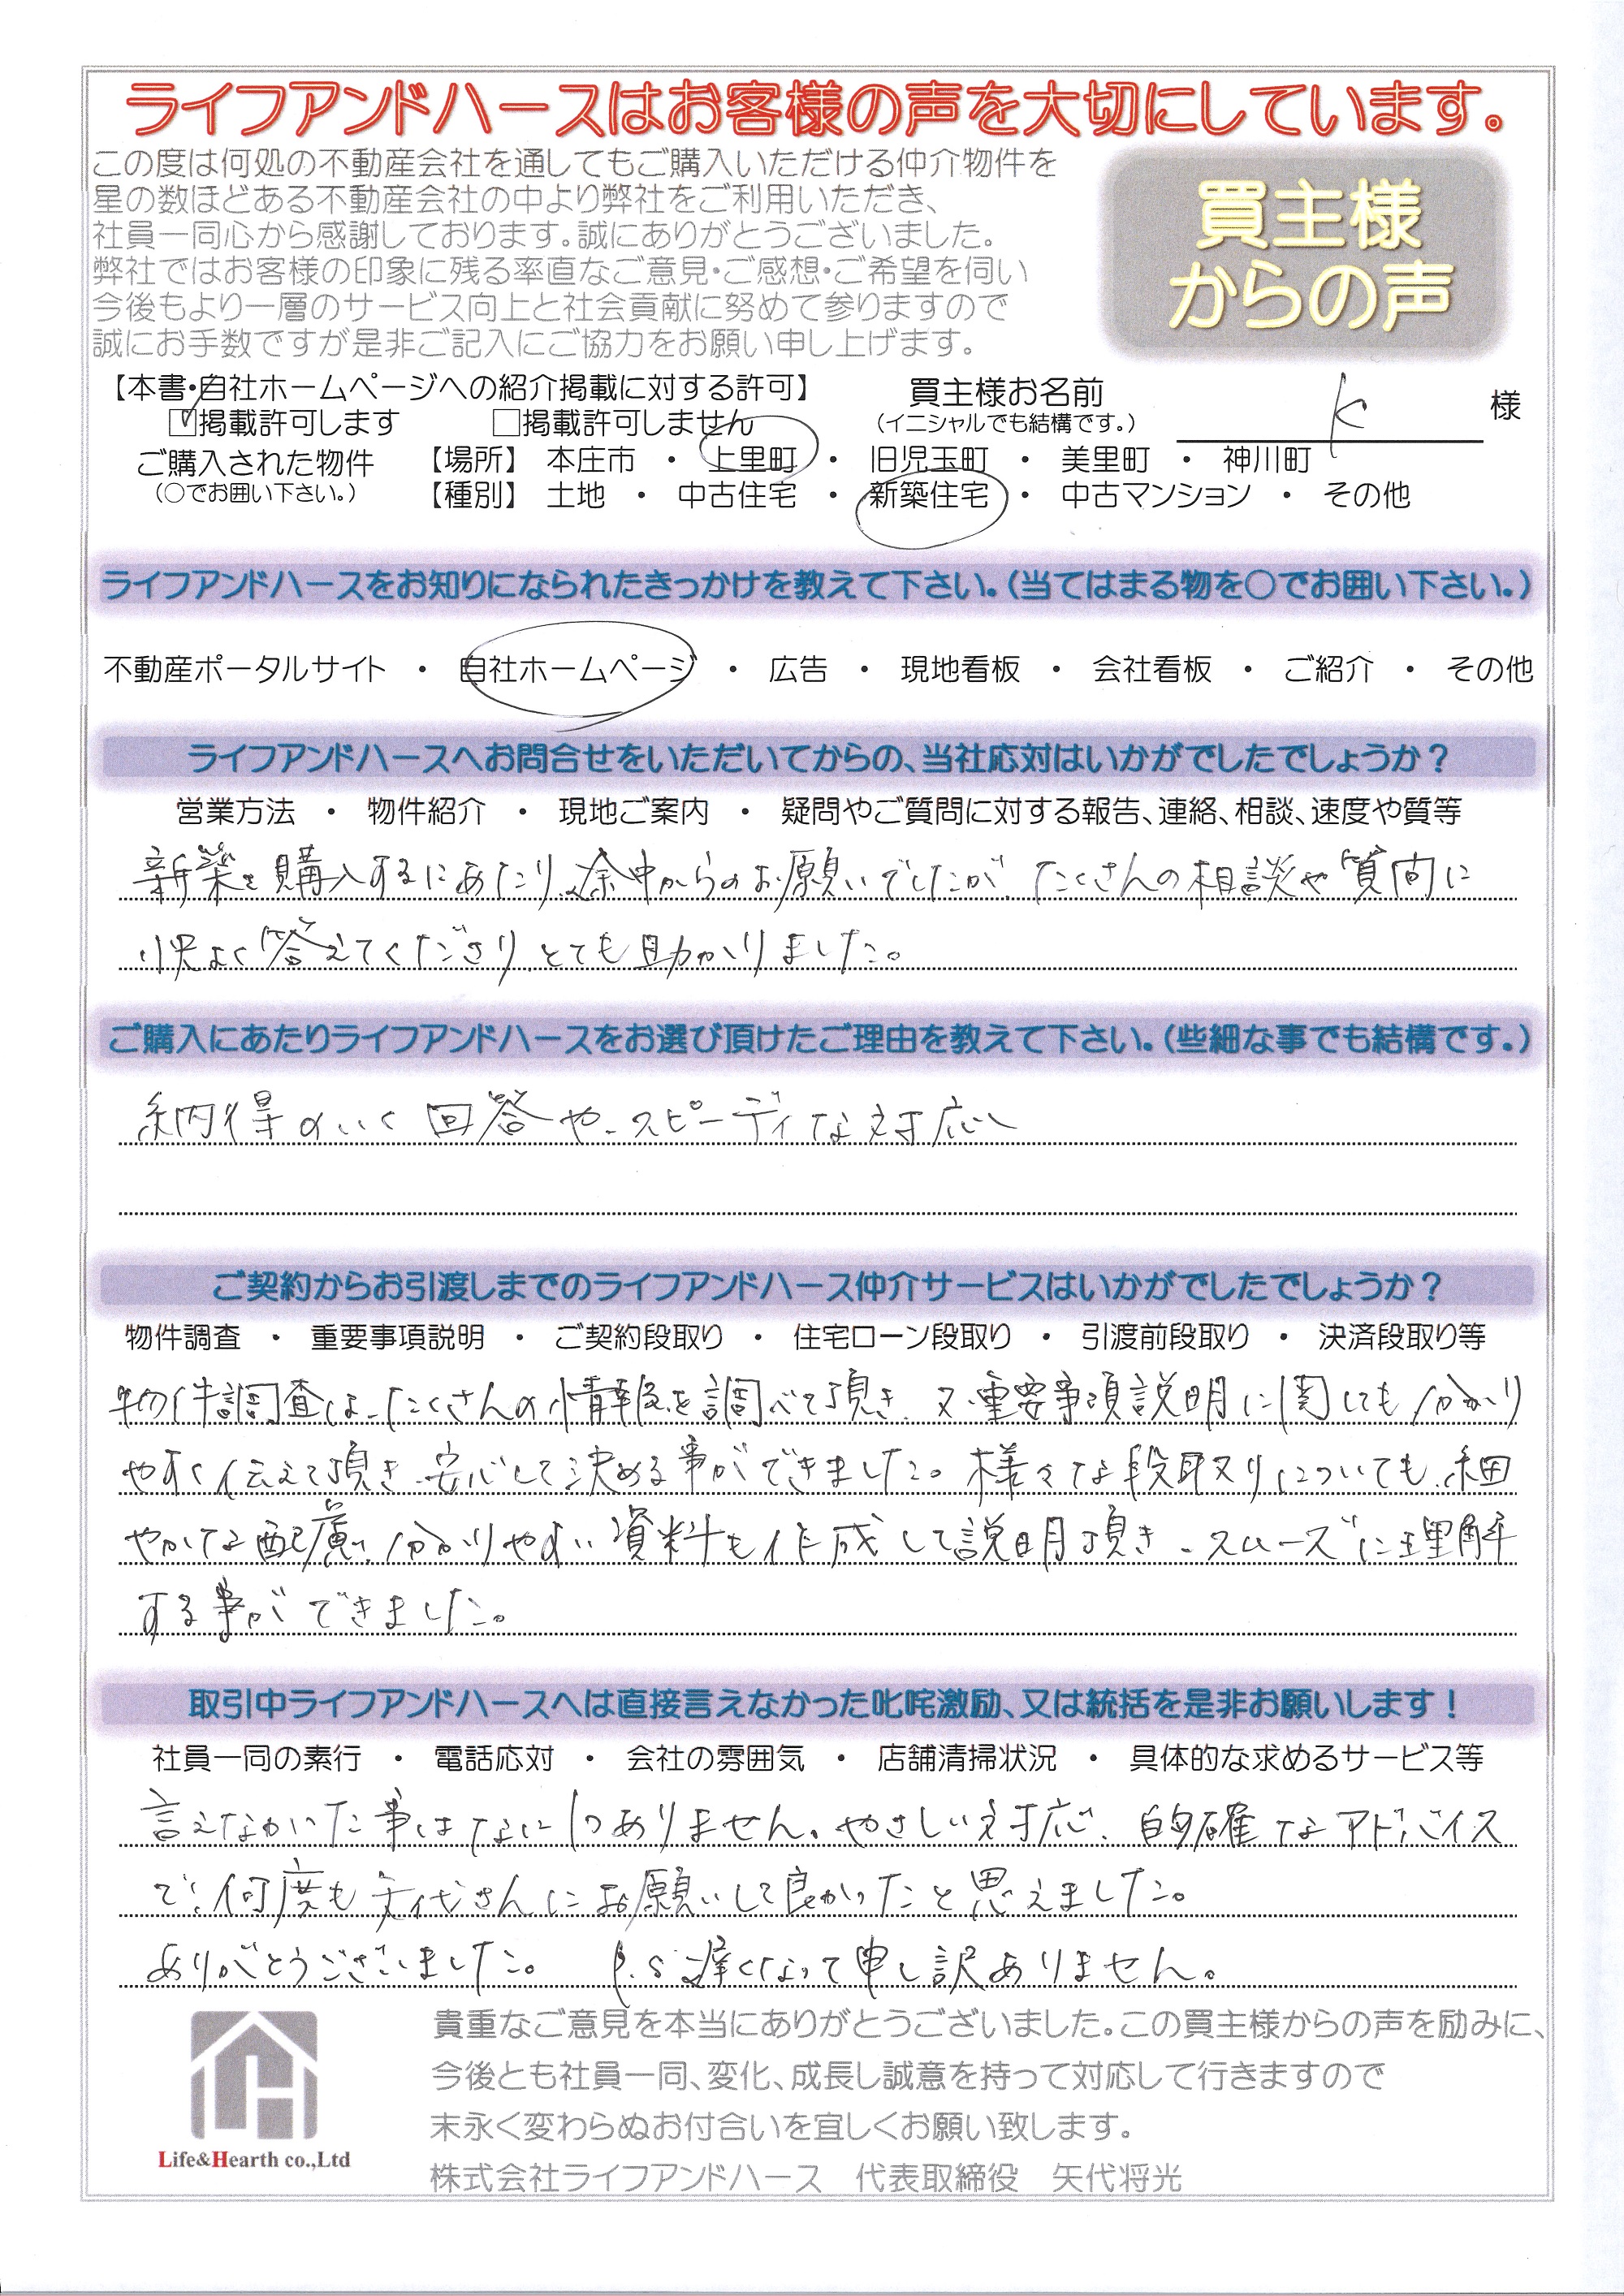 ライフアンドハースはお客様の声を大切にしています。
この度は何処の不動産会社を通してもご購入いただける仲介物件を
星の数ほどある不動産会社の中より弊社をご利用いただき、
社員一同心から感謝しております。誠にありがとうございました。
弊社ではお客様の印象に残る率直なご意見・ご感想・ご希望を伺い
今後もより一層のサービス向上と社会貢献に努めて参りますので
誠にお手数ですが是非ご記入にご協力をお願い申し上げます。
買主様
からの声
【本書・自社ホームページへの紹介掲載に対する許可】
☑掲載許可します □掲載許可しません
買主様お名前 K 様
(イニシャルでも結構です。)
ご購入された物件 【場所】 本庄市 ・ 上里町 ・ 旧児玉町 ・ 美里町 ・ 神川町
(○でお囲い下さい。) 【種別】 土地 ・ 中古住宅 ・ 新築住宅 ・ 中古マンション ・ その他
ライフアンドハースをお知りになられたきっかけを教えて下さい。(当てはまる物を○でお囲い下さい。)
不動産ポータルサイト ・ 自社ホームページ ・ 広告 ・ 現地看板 ・ 会社看板 ・ ご紹介 ・ その他
ライフアンドハースへお問合せをいただいてからの、当社応対はいかがでしたでしょうか？
営業方法 ・ 物件紹介 ・ 現地ご案内 ・ 疑問やご質問に対する報告、連絡、相談、速度や質等
新築を購入するにあたり、途中からのお願いでしたが、たくさんの相談や質問に
快よく答えてくださり、とても助かりました。
ご購入にあたりライフアンドハースをお選び頂けたご理由を教えて下さい。(些細な事でも結構です。)
納得のいく回答や、スピーディな対応
ご契約からお引渡しまでのライフアンドハース仲介サービスはいかがでしたでしょうか？
物件調査 ・ 重要事項説明 ・ ご契約段取り ・ 住宅ローン段取り ・ 引渡前段取り ・ 決済段取り等
物件調査は、たくさんの情報を調べて頂き、又、重要事項説明に関しても分かり
やすく伝えて頂き、安心して決める事ができました。様々な段取りについても、細
やかな配慮、分かりやすい資料も作成して説明頂き、スムーズに理解
する事ができました。
取引中ライフアンドハースへは直接言えなかった叱咤激励、又は統括を是非お願いします！
社員一同の素行 ・ 電話応対 ・ 会社の雰囲気 ・ 店舗清掃状況 ・ 具体的な求めるサービス等
言えなかった事はなに1つありません。やさしい対応、的確なアドバイス
で、何度も矢代さんにお願いして良かったと思えました。
ありがとうございました。 P.S 遅くなって申し訳ありません。
貴重なご意見を本当にありがとうございました。この買主様からの声を励みに、
今後とも社員一同、変化、成長し誠意を持って対応して行きますので
末永く変わらぬお付合いを宜しくお願い致します。
Life&Hearth co.,Ltd
株式会社ライフアンドハース 代表取締役 矢代将光